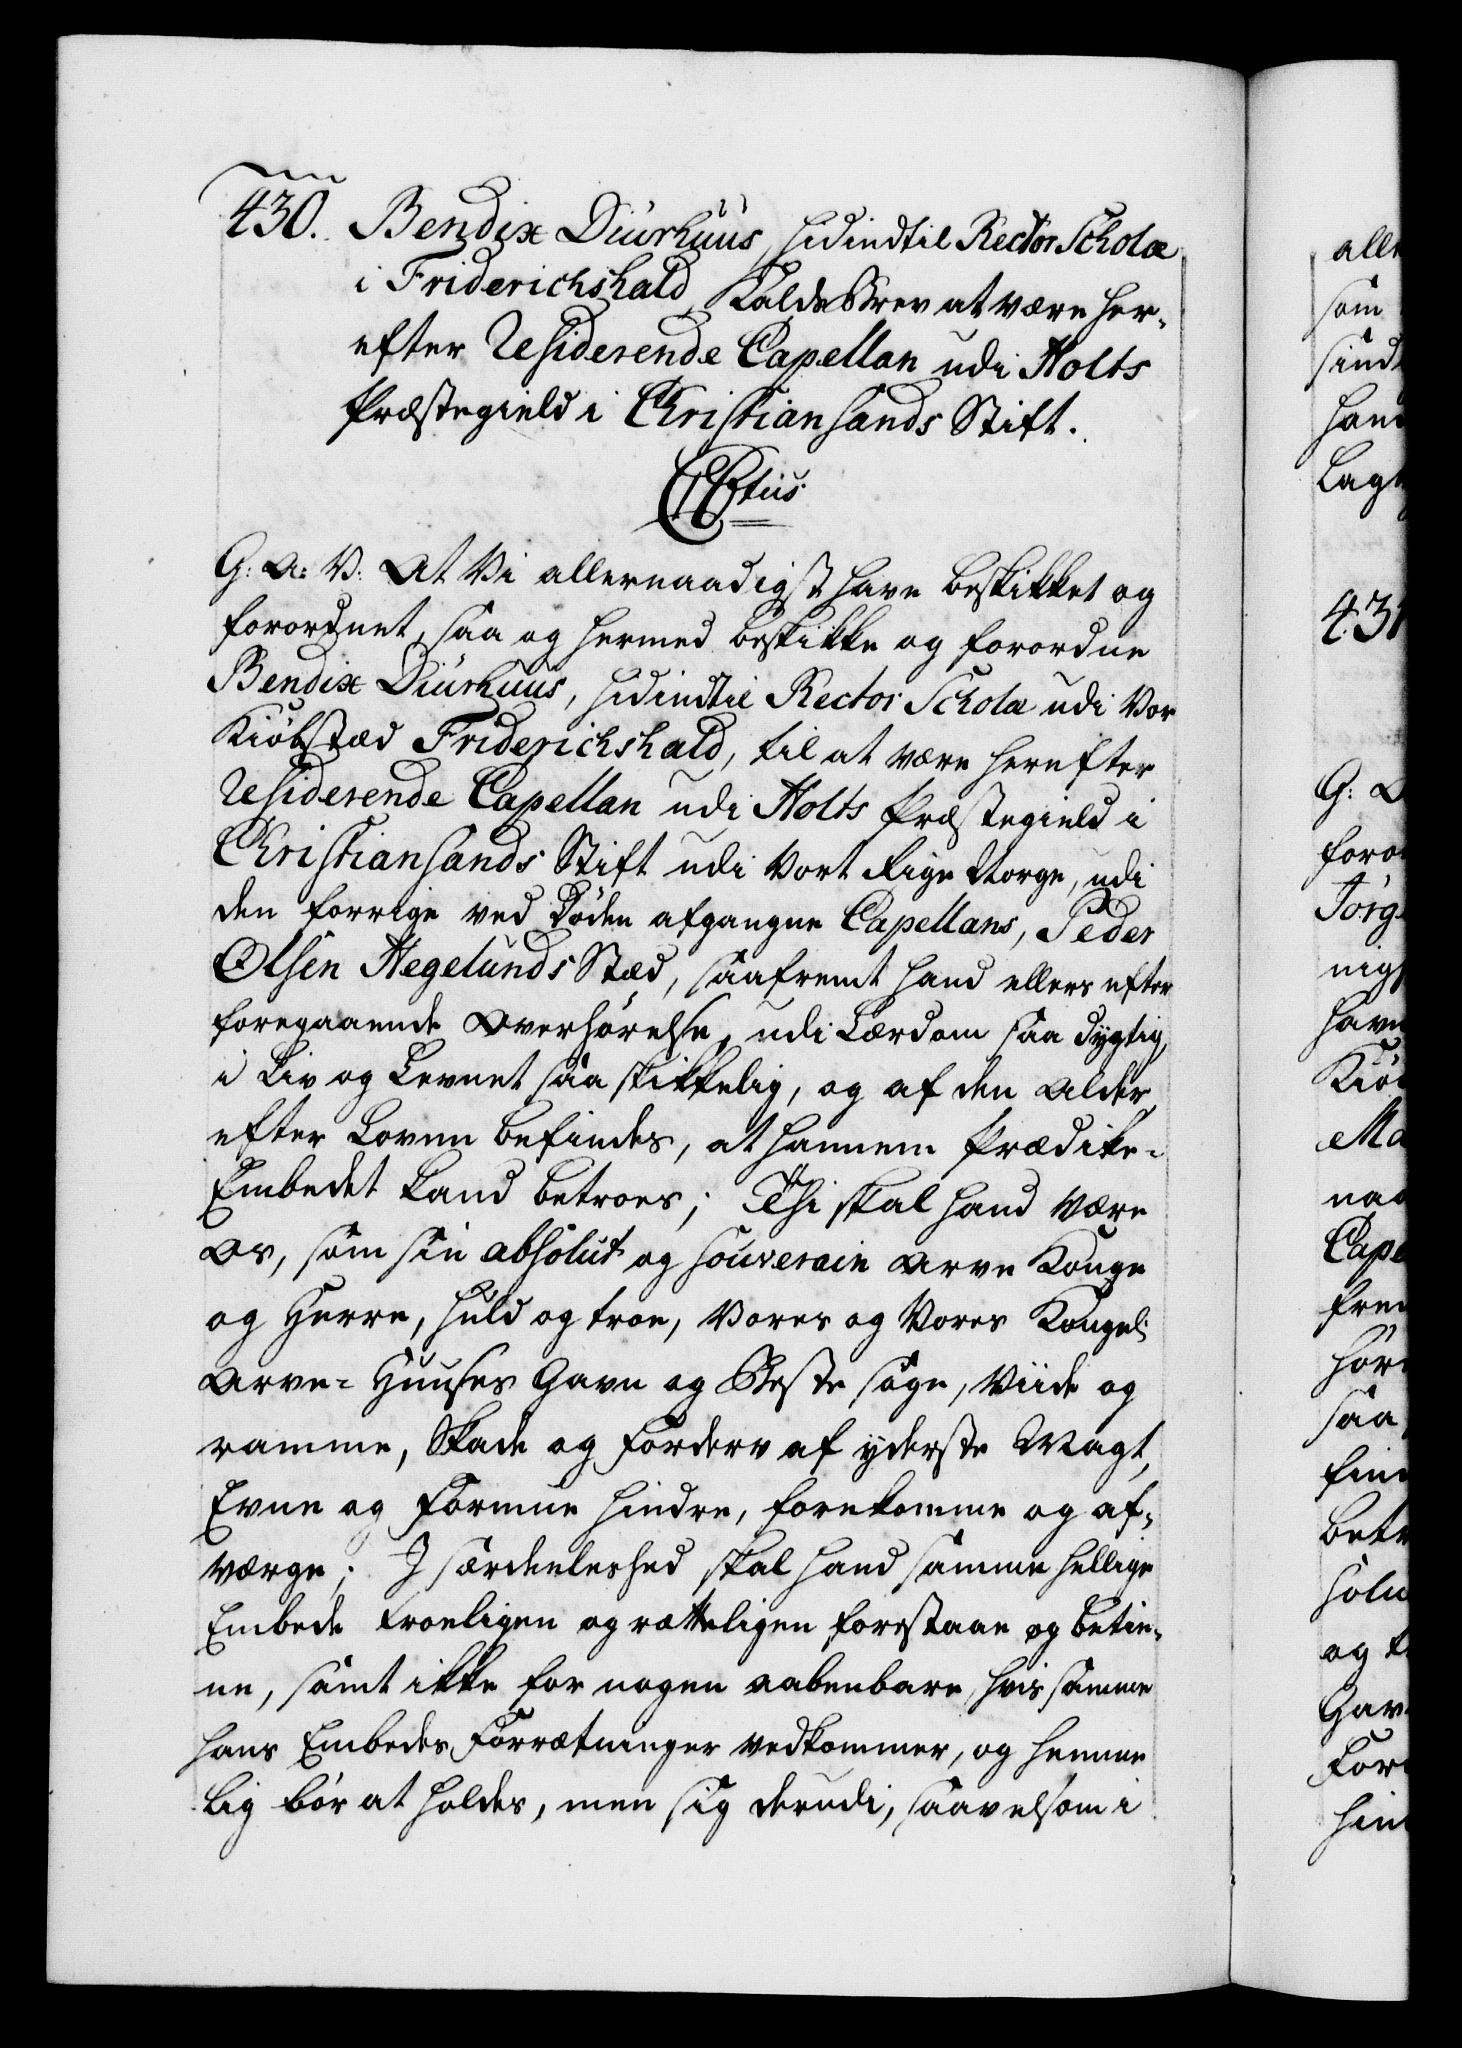 430. Bendix Diurhuus, hidindtil Rector Scholæ
i Friderichshald, Kalds Brev at være her-
efter Residerende Capellan udi Holts
Præstegield i Christiansands Stift.
C6tus.
G: A: V: At Vi allernaadigst have beskikket og
forordnet, saa og hermed beskikke og forordne
Bendix Diurhuus, hidindtil Rector Scholæ udi Vor
Kiøbstæd Friderichshald, til at være herefter
Residerende Capellan udi Holts Præstegield i
Christiansands Stift udi Vort Rige Norge, udi
den forrige ved Døden afgangne Capellans, Peder
Olsen Hegelunds Stæd, saafremt hand ellers efter
foregaaende Overhørelse, udi Lærdom saa dygtig,
i Liv og Levnet saa skikkelig, og af den Alder
efter Loven befindes, at hannem Prædike-
Embedet kand betroes; Thi skal hand være
Os, som sin absolut og souverain Arve Konge
og Herre, huld og troe, Vores og Vores Kongel:
Arve-Huuses Gavn og Beste søge, Viide og
ramme, Skade og Forderv af yderste Magt,
Evne og Formue hindre, forekomme og af-
værge; I særdeeleshed skal hand samme hellige
Embede troeligen og rætteligen forestaae og betie-
ne, samt ikke for nogen aabenbare, hvis samme
hans Embedes Forrætninger vedkommer, og hemme-
lig bør at holdes, men sig derudi, saavelsom i
alle
som
sind
han
Lagt
431
G:
foro
Jørg
nigst
havn
Kiøb
Ma
naa
Cape
frem
hør
saa
find
betr
solu
og t
Gav
For
hin